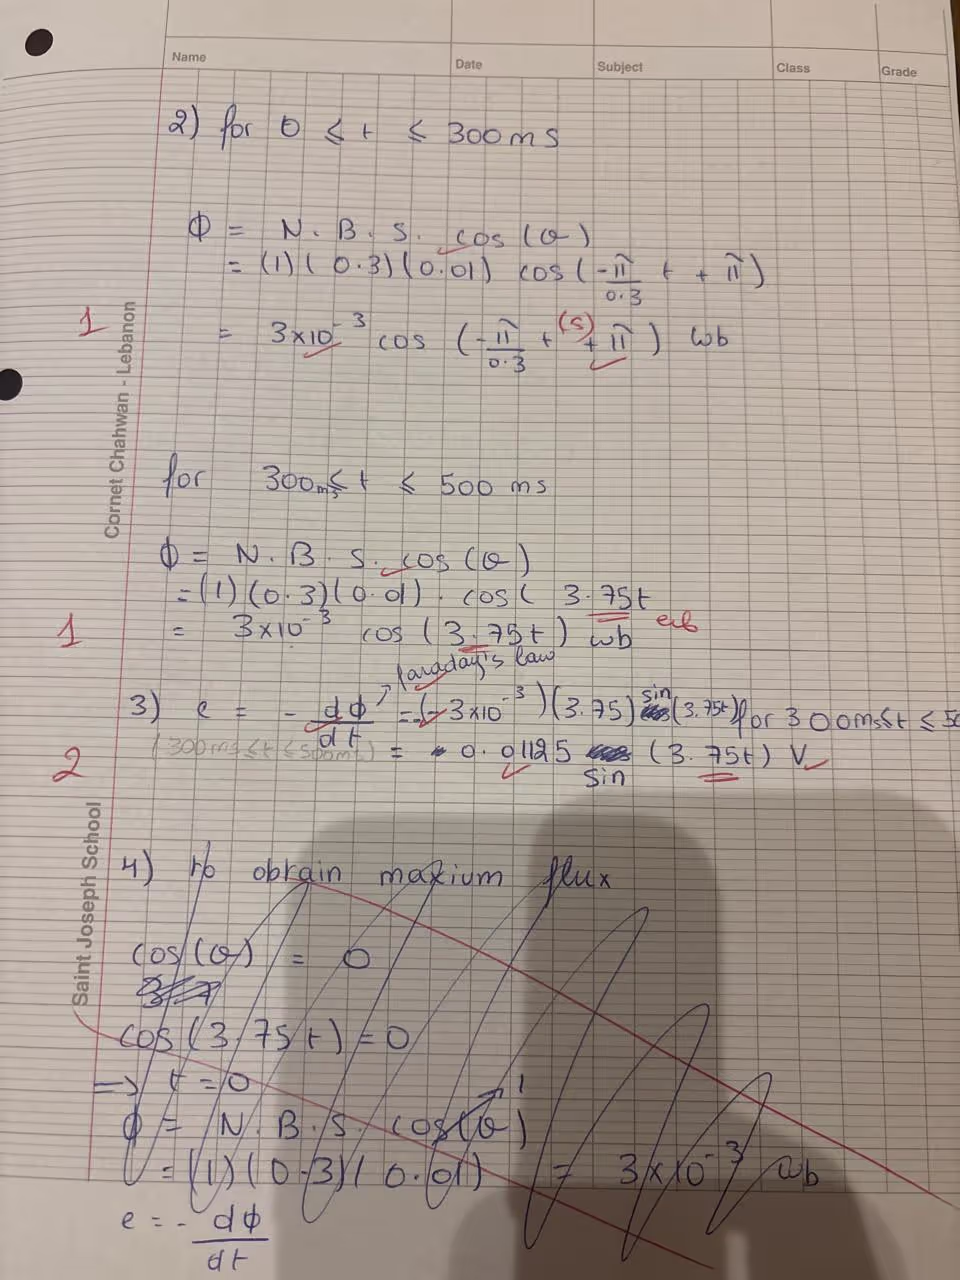 Name Date Subject Class Grade
2) for 0 ≤ t ≤ 300ms
Φ = N. B. S. cos(θ)
= (1)(0.3)(0.01) cos(-π/0.3 t + π)
1
= 3×10⁻³ cos (-π/0.3 t (s) + π) wb
Cornet Chahwan - Lebanon
for 300ms ≤ t ≤ 500 ms
Φ = N. B. S. cos(θ)
= (1)(0.3)(0.01). cos( 3.75t
1
= 3×10⁻³ cos(3.75t) wb
faraday's law
3) e = - dΦ/dt = (-3×10⁻³)(3.75) sin (3.75t) for 300ms ≤ t ≤ 50
2
(300ms ≤ t ≤ 500ms) = 0.01125 sin (3.75t) V
Saint Joseph School
4) to obtain maxium flux
cos(θ) = 0
cos(3.75t) = 0
⇒ t = 0
1
Φ = N. B. S. cos(θ)
= (1)(0.3)(0.01) = 3×10⁻³ wb
e = - dΦ/dt